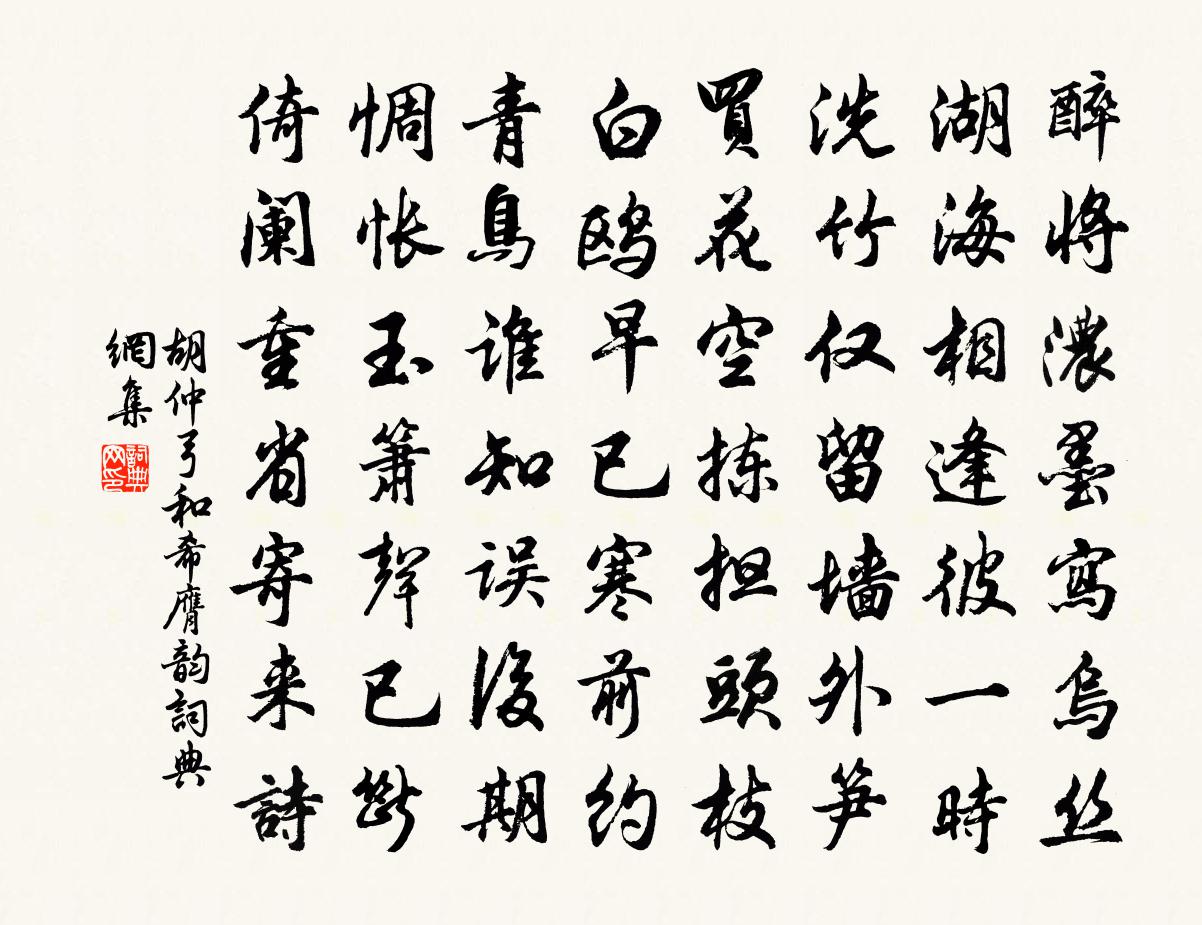 醉將濃墨寫烏丝
湖海相逢彼一時
洗竹仅留墙外笋
買花空拣担頭枝
白鸥早已寒前约
青鳥谁知误後期
惆怅玉箫聲已斷
倚阑重省寄来詩
胡仲弓和希膺韵詞典
網集
詞典
网印